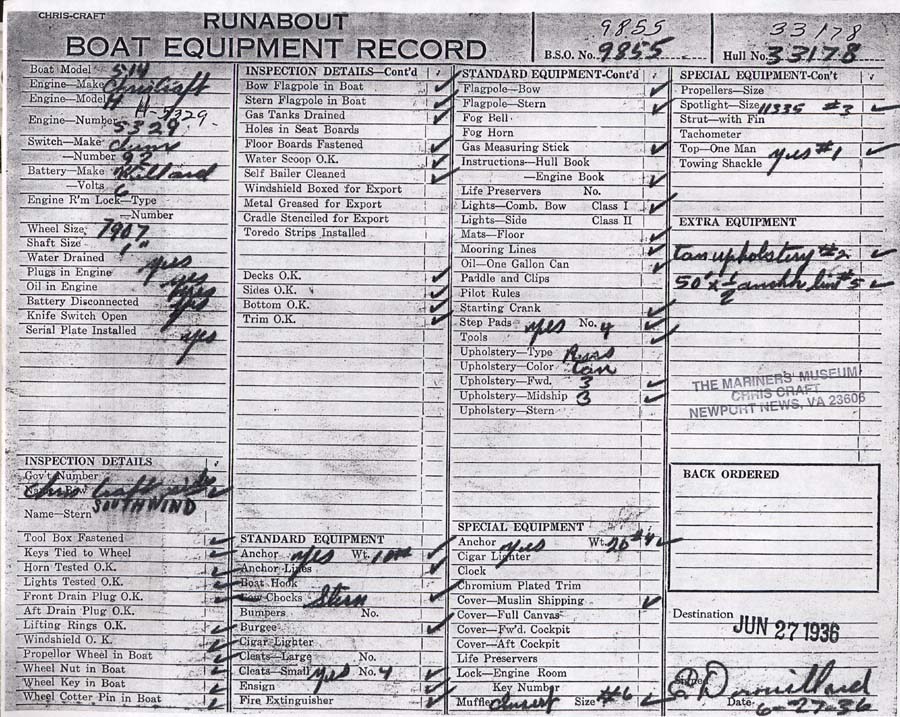 CHRIS-CRAFT
RUNABOUT
BOAT EQUIPMENT RECORD
9855
B.S.O. No. 9855
33178
Hull No. 33178
Boat Model 514
Engine—Make Chriscraft
Engine—Model H
H-5329
Engine—Number 5329
Switch—Make
—Number 92
Battery—Make Willard
—Volts 6
Engine R'm Lock—Type
—Number
Wheel Size 7907
Shaft Size 1"
Water Drained yes
Plugs in Engine yes
Oil in Engine yes
Battery Disconnected yes
Knife Switch Open
Serial Plate Installed yes
INSPECTION DETAILS
Gov't Number
Chris Craft
Name—Stern SOUTHWIND
Tool Box Fastened ✓
Keys Tied to Wheel ✓
Horn Tested O.K. ✓
Lights Tested O.K. ✓
Front Drain Plug O.K. ✓
Aft Drain Plug O.K.
Lifting Rings O.K. ✓
Windshield O. K. ✓
Propellor Wheel in Boat ✓
Wheel Nut in Boat ✓
Wheel Key in Boat ✓
Wheel Cotter Pin in Boat ✓
INSPECTION DETAILS—Cont'd ✓
Bow Flagpole in Boat ✓
Stern Flagpole in Boat ✓
Gas Tanks Drained ✓
Holes in Seat Boards
Floor Boards Fastened ✓
Water Scoop O.K. ✓
Self Bailer Cleaned ✓
Windshield Boxed for Export
Metal Greased for Export
Cradle Stenciled for Export
Toredo Strips Installed
Decks O.K. ✓
Sides O.K. ✓
Bottom O.K. ✓
Trim O.K. ✓
STANDARD EQUIPMENT
Anchor yes Wt. ✓
Anchor Lines ✓
Boat Hook
Bow Chocks Stern ✓
Bumpers No.
Burgee ✓
Cigar Lighter
Cleats—Large No.
Cleats—Small yes No. 4 ✓
Ensign ✓
Fire Extinguisher ✓
STANDARD EQUIPMENT-Cont'd ✓
Flagpole—Bow ✓
Flagpole—Stern ✓
Fog Bell
Fog Horn
Gas Measuring Stick ✓
Instructions—Hull Book
—Engine Book ✓
Life Preservers No.
Lights—Comb. Bow Class I ✓
Lights—Side Class II
Mats—Floor ✓
Mooring Lines ✓
Oil—One Gallon Can ✓
Paddle and Clips
Pilot Rules
Starting Crank ✓
Step Pads yes No. 4 ✓
Tools ✓
Upholstery—Type
Upholstery—Color Tan
Upholstery—Fwd. 3 ✓
Upholstery—Midship 3 ✓
Upholstery—Stern
SPECIAL EQUIPMENT
Anchor yes Wt. 20 #4 ✓
Cigar Lighter
Clock
Chromium Plated Trim
Cover—Muslin Shipping ✓
Cover—Full Canvas
Cover—Fw'd. Cockpit
Cover—Aft Cockpit
Life Preservers
Lock—Engine Room
Key Number
Muffler Size #6 ✓
SPECIAL EQUIPMENT-Con't ✓
Propellers—Size
Spotlight—Size 11335 #3 ✓
Strut—with Fin
Tachometer
Top—One Man yes #1 ✓
Towing Shackle
EXTRA EQUIPMENT
Tan upholstery #2 ✓
50' x 1/2 anchor line #5 ✓
THE MARINERS' MUSEUM
CHRIS CRAFT
NEWPORT NEWS, VA 23606
BACK ORDERED
Destination
JUN 27 1936
Signed
Date 6-27-36